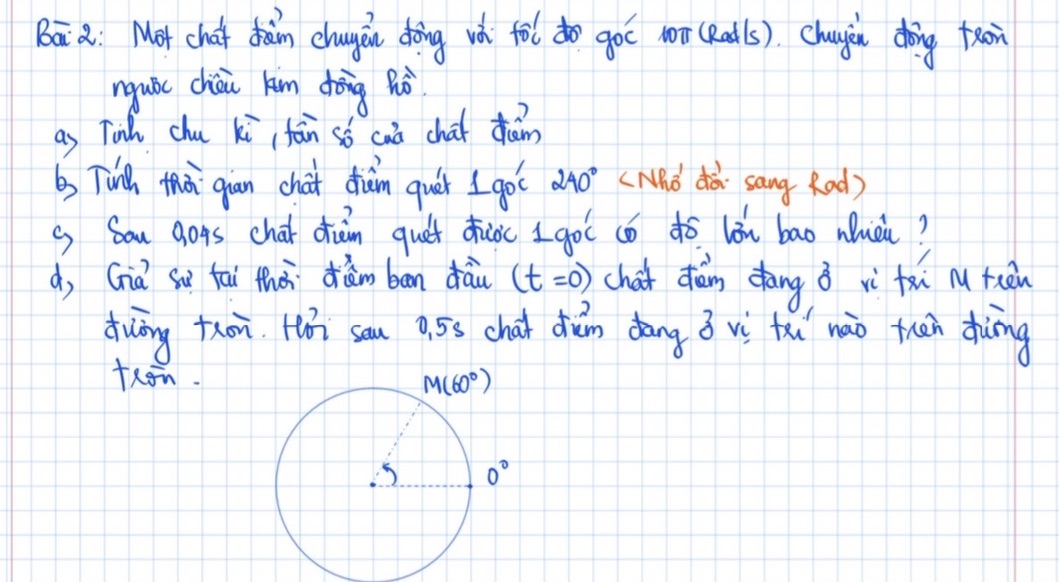 Bài 2: Một chất điểm chuyển động với tốc độ góc 10π (Rad/s). Chuyển động tròn
ngược chiều kim đồng hồ.
a, Tính chu kì, tần số của chất điểm
b, Tính thời gian chất điểm quét 1 góc 240° <Nhớ đổi sang Rad>
c, Sau 0,04s chất điểm quét được 1 góc có độ lớn bao nhiêu?
d, Giả sử tại thời điểm ban đầu (t=0) chất điểm đang ở vị trí M trên
đường tròn. Hỏi sau 0,5s chất điểm đang ở vị trí nào trên đường
tròn.
M(60°)
0°